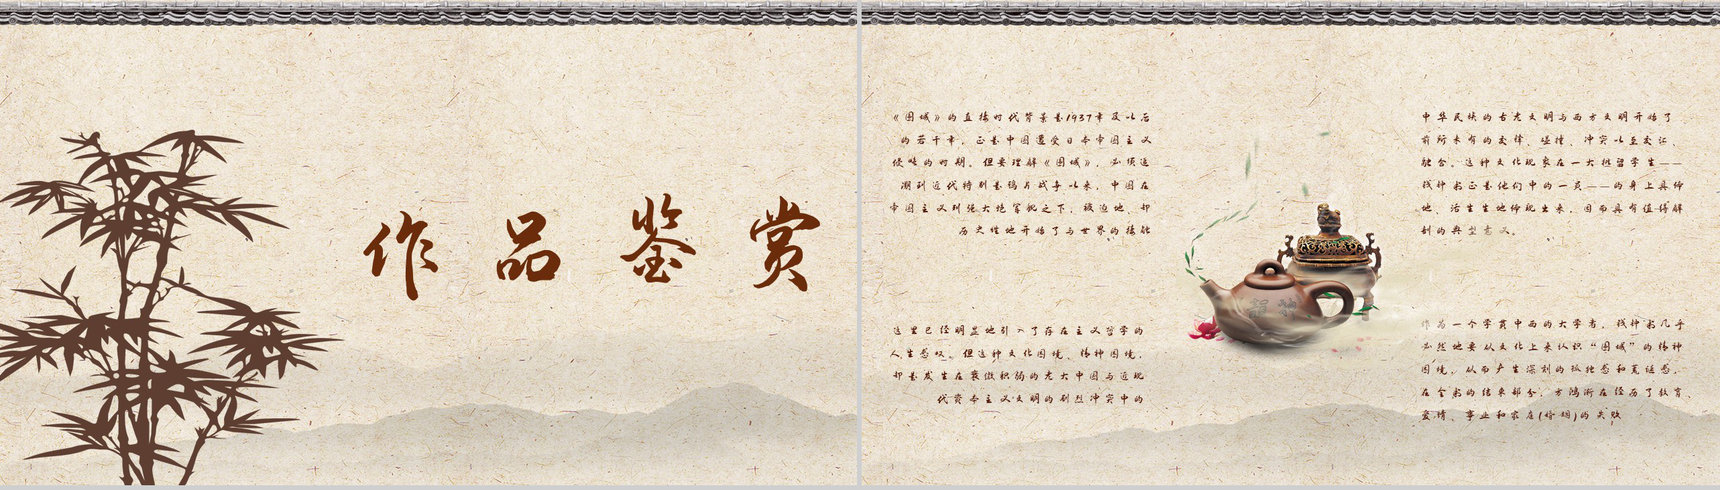 作品鉴赏
《围城》的直接时代背景是1937年及以后
的若干年，正是中国遭受日本帝国主义
侵略的时期。但要理解《围城》，必须追
溯到近代特别是鸦片战争以来，中国在
帝国主义列强大炮军舰之下，被迫地、却
历史性地开始了与世界的接触
这里已经明显地引入了存在主义哲学的
人生感叹。但这种文化困境、精神困境，
却是发生在衰微积弱的老大中国与近现
代资本主义文明的剧烈冲突中的
中华民族的古老文明与西方文明开始了
前所未有的交锋、碰撞、冲突以至交汇、
融合。这种文化现象在一大批留学生——
钱钟书正是他们中的一员——的身上具体
地、活生生地体现出来，因而具有值得解
剖的典型意义。
作为一个学贯中西的大学者，钱钟书几乎
必然地要从文化上来认识“围城”的精神
困境，从而产生深刻的孤独感和荒诞感。
在全书的结束部分，方鸿渐在经历了教育、
爱情、事业和家庭(婚姻)的失败